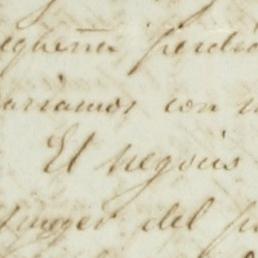 pequeña perdi
ariamos con
El negocio
muger del